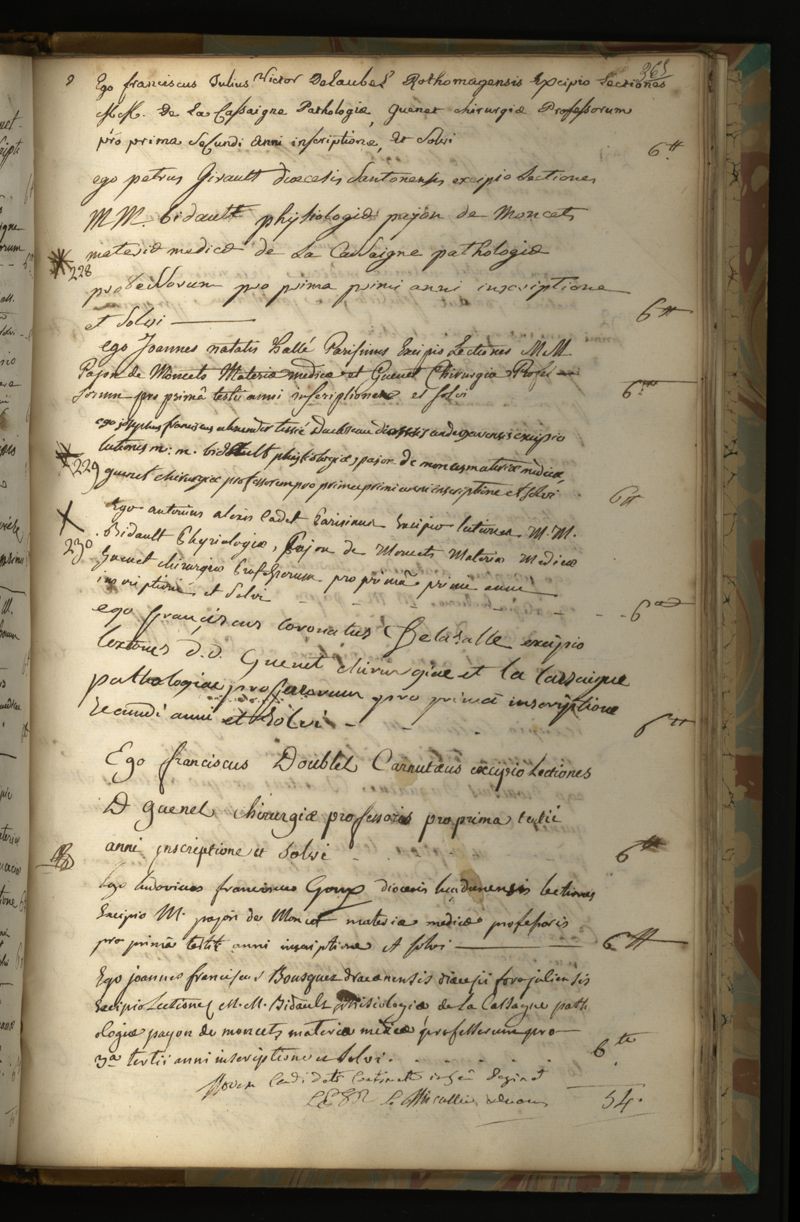 365
Ego franciscus Julius Victor Delaubel Rothomagensis Excipio Lectiones
M.M. De La Cassaigne Pathologiæ, Guenet chirurgiæ Professorum
pro prima secundi anni inscriptione, et Solvi 6tt
ego petrus Girault diœcesis Santonensis excipio Lectiones
M M. bidault physiologiæ pajon de Moncets
materiæ medicæ de La Cassaigne pathologiæ
228
professorum pro prima primi anni inscriptione
et Solvi 6tt
ego Joannes natalis hallé Parisinus Excipio Lectiones M.M.
Pajon de Moncets Materiæ medicæ et Guenet Chirurgiæ Profes
sorum pro primâ tertii anni inscriptione et solvi 6tt
ego josephus franciscus andegavensis excipio
lectiones m. m. bidault phisiologiæ, pajon de moncets materiæ medicæ,
229
guenet chirurgiæ professorum pro prima primi anni inscriptione et solvi 6tt
Ego antonius alexis Cadet Parisinus Excipio lectiones M. M.
230
Bidault Physiologiæ, Pajon de Moncets Materiæ Medicæ
Guenet chirurgiæ Professorum pro primâ primi anni
inscriptione et Solvi 6tt
ego franciscus coronatus Delasalle excipio
lectiones d.d. Guenet chirurgiae et la Cassaigne
pathologiae professorum pro primâ inscriptione
secundi anni et Solvi 6tt
Ego franciscus Doublet Carnutæus excipio Lectiones
D Guenet chirurgiæ professoris pro prima tertii
anni inscriptione et Solvi 6tt
Ego ludovicus franciscus Goup diocesis lugdunensis lectiones
Excipio M. pajon de Moncet materiæ medicæ professoris
pro primâ tertii anni inscriptione et solvi 6tt
Ego joannes franciscus Bousquet dracenensis diœcesis forojuliensis
Excipio Lectiones M.M. Bidault phisiologiæ de La Cassagne path
ologiæ pajon de moncets materiæ medicæ professorum pro
3a tertii anni inscriptione et Solvi. 6tt
Novem Candidati
54.